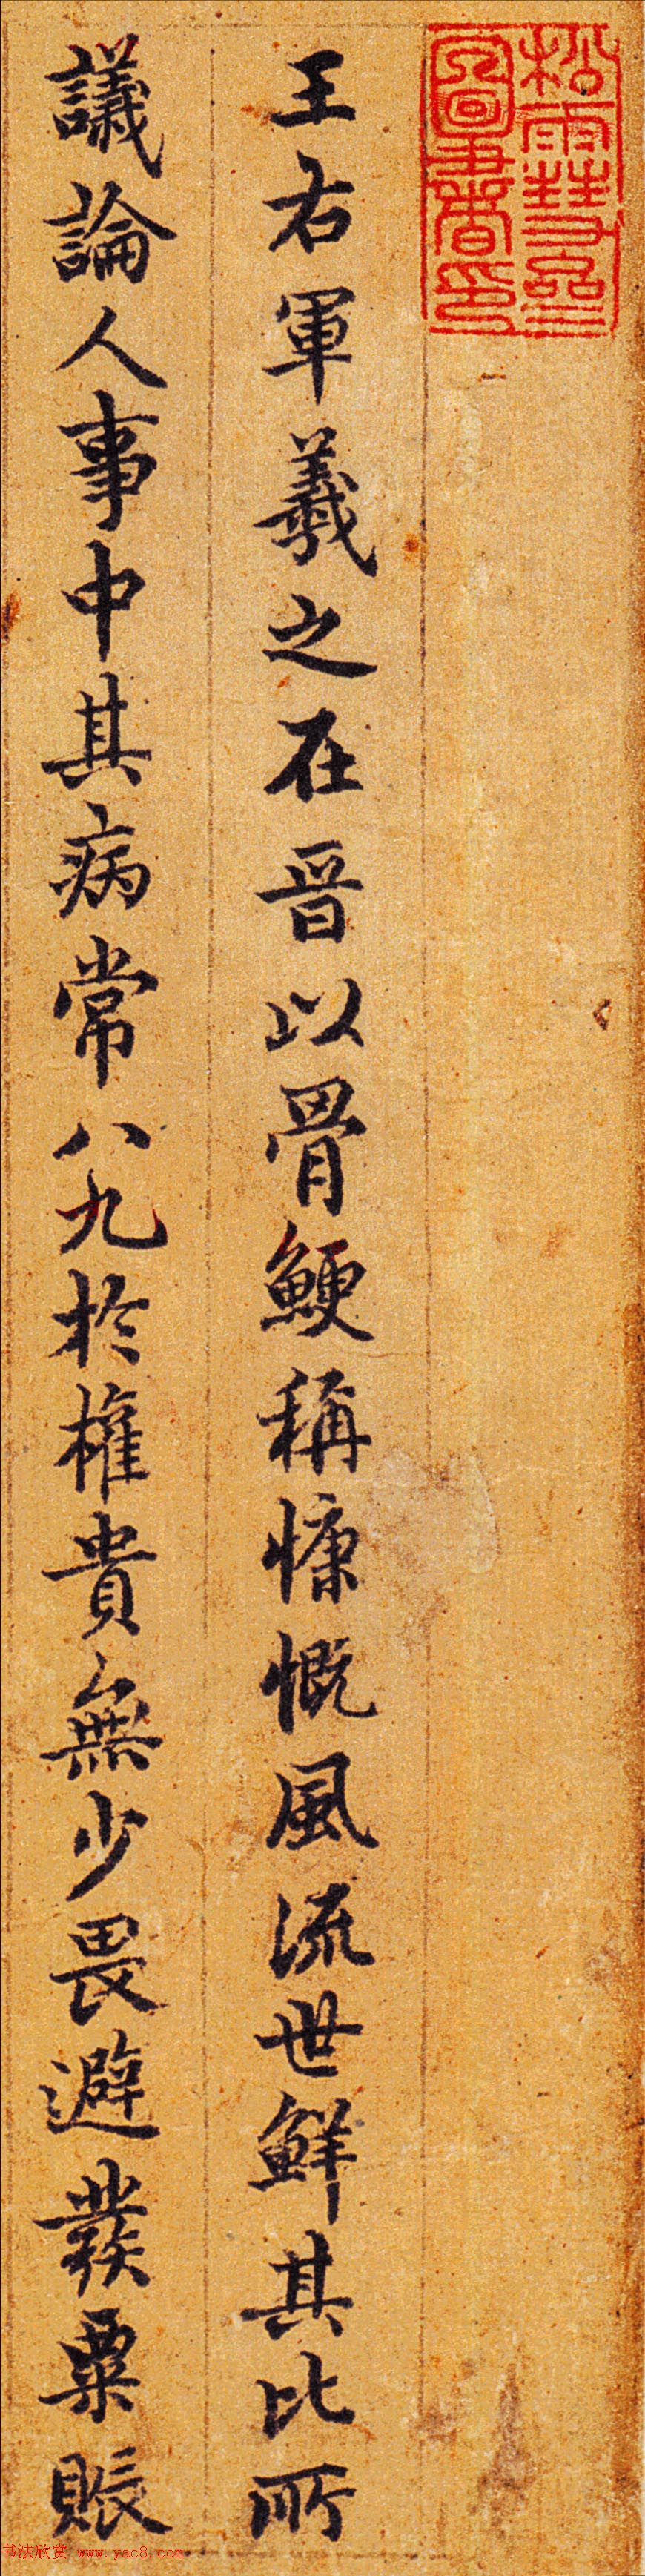 王右軍羲之在晋以骨鯁稱慷慨風流世鮮其比所
議論人事中其病常八九於權貴無少畏避發粟賑
书法欣赏 www.yac8.com